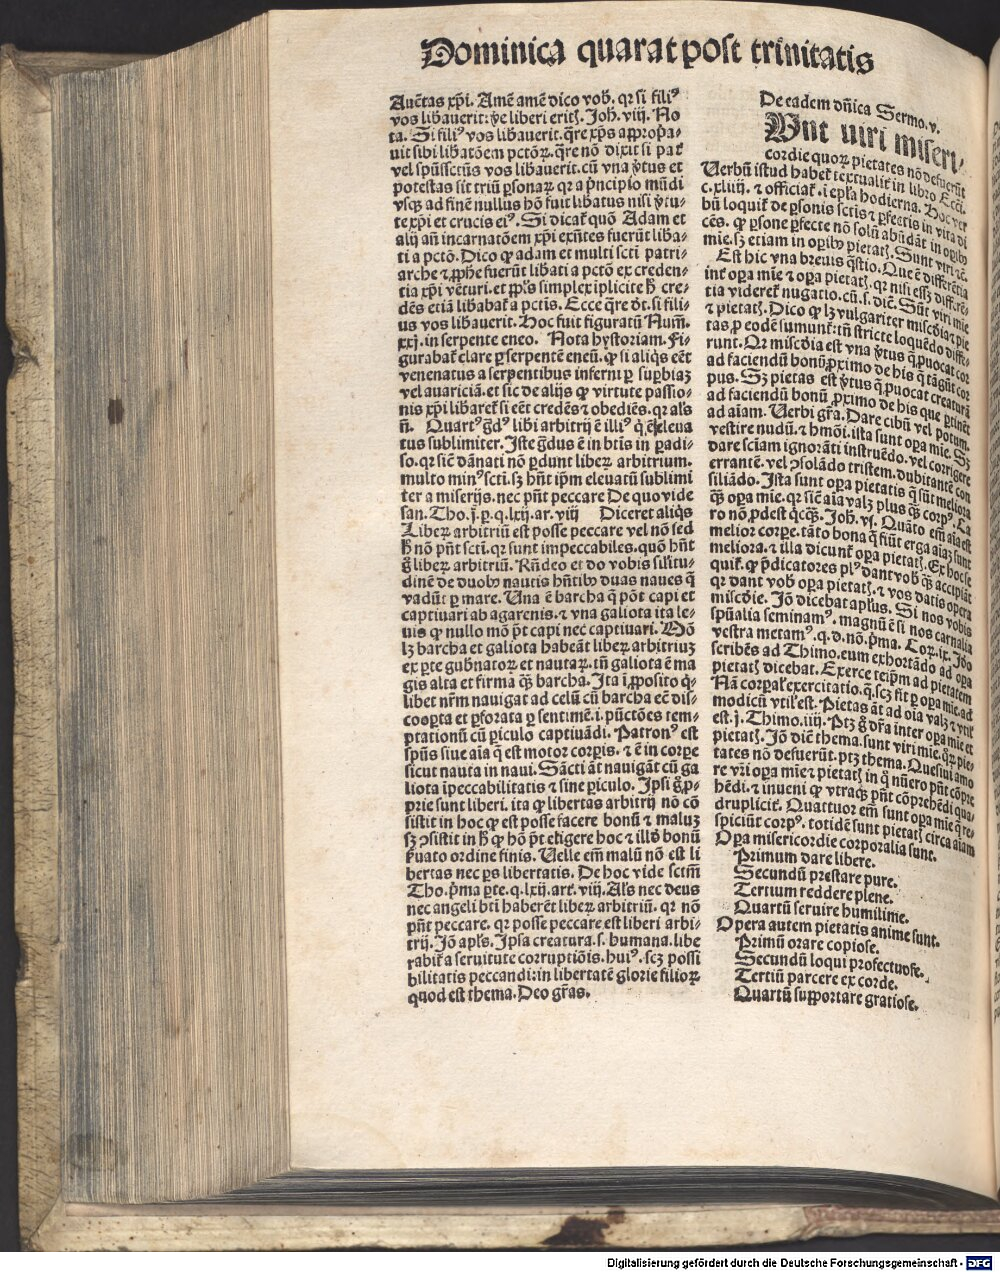 Dominica quarta post trinitatis
Auētas xp̄i. Amē amē dico vob̄. qꝛ si filiꝰ
vos lib̄auerit: ꝟe liberi eritꝭ. Joh̄. viij. No
ta. Si filiꝰ vos lib̄auerit. q̄re xp̄s app̄ropa̾
uit sibi lib̄atōem pctōꝝ. q̄re nō dixit si pat̄
vel sp̄ūsctūs vos lib̄auerit. cū vna v̾tus et
potestas sit triū ꝑsonaꝝ qꝛ a p̾ncipio mūdi
vsqꝫ ad finē nullus hō fuit lib̄atus nisi v̾tu-
te xp̄i et crucis eiꝰ. Si dicat̄ quō Adam et
alij an̄ incarnatōem xp̄i exn̄tes fuerūt lib̄a-
ti a pctō. Dico ꝙ adam et multi scti patri-
arche ⁊ ꝓphe fuerūt lib̄ati a pctō ex creden-
tia xp̄i vēturi. et ppl̄s simplex iplicite h̄ cre-
dēs etiā lib̄abat̄ a pctis. Ecce q̄re dt̄. si fili-
us vos lib̄auerit. Hoc fuit figuratū Num̄.
xxj. in serpente eneo. Nota hystoriam. Fi-
gurabat̄ clare ꝑ serpentē eneū. ꝙ si aliq̄s eēt
venenatus a serpentibus inferni ꝑ suꝑbiaꝫ
vel auariciā. et sic de alijs ꝙ virtute passio-
nis xp̄i libaret̄ si eēt credēs ⁊ obediēs. qꝛ al̄s
n̄. Quartꝰ g̾dꝰ libi arbitrij ē illiꝰ q̾ ē eleua
tus sublimiter. Iste g̾dus ē in btīs in ꝑadi-
so. qꝛ siē dānati nō ꝑdunt libeꝝ arbitrium.
multo minꝰ scti. sꝫ hn̄t ip̄m eleuatū sublimi
ter a miserijs. nec pn̄t peccare De quo vide
san. Tho. j. ꝑ. q. lxij. ar. viij Diceret aliq̄s
Libeꝝ arbitriū est posse peccare vel nō sed
h̄ nō pn̄t scti. qꝛ sunt impeccabiles. quō hn̄t
g̾ libeꝝ arbitriū. Rn̄deo et do vobis silitu-
dinē de duobꝰ nautis hn̄tibꝰ duas naues q̄
vadūt ꝑ mare. Una ē barcha q̄ pōt capi et
captiuari ab agarenis. ⁊ vna galiota ita le-
uis ꝙ nullo mō p̄t capi nec captiuari. Mō
lꝫ barcha et galiota habeāt libeꝝ arbitriuꝫ
ex ꝑte gub̄natoꝝ et nautaꝝ. tn̄ galiota ē ma
gis alta et firma q̄ꝫ barcha. Ita ī ꝓposito q̾-
libet nr̄m nauigat ad celū cū barcha eē dis-
cooꝑta et ꝑforata ꝑ sentimē. i. pūctōes tem-
ptationū cū ꝑiculo captiuādi. Patronꝰ est
spūs siue aīa q̄ est motor corꝑis. ⁊ ē in corꝑe
sicut nauta in naui. Sācti āt nauigāt cū ga
liota īpeccabilitatis ⁊ sine ꝑiculo. Ipsi g̾ ꝓ-
prie sunt liberi. ita ꝙ libertas arbitrij nō cō
sistit in hoc ꝙ est posse facere bonū ⁊ maluꝫ
sꝫ ↄsistit in h̄ ꝙ hō p̄t eligere hoc ⁊ illḋ bonū
ẜuato ordine finis. Uelle em̄ malū nō est li
bertas nec ꝑs libertatis. De hoc vide sctm̄
Tho. p̾ma ꝑte. q. lxij. art̄. viij. Al̄s nec deus
nec angeli bti haberēt libeꝝ arbitriū. qꝛ nō
pn̄t peccare. qꝛ posse peccare est liberi arbi-
trij. Jō apl̄s. Ipsa creatura. s. humana. libe
rabit̄ a seruitute corruptiōis. huiꝰ. scꝫ possi
bilitatis peccandi: in libertatē glorie filioꝝ
quod est thema. Deo gr̄as.
De eadem dn̄ica Sermo. v.
Unt uiri miseri-
cordie quoꝝ pietates nō defuerūt
Uerbū istud habet̄ textualit̄ in libro Ecci.
c. xliiij. ⁊ officiat̄. i ep̄la hodierna. Hoc ver
bū loquit̄ de ꝑsonis sctis ⁊ ꝑfectis in vita di
cēs. ꝙ ꝑsone ꝑfecte nō solū abūdāt in oꝑibꝰ
mie. sꝫ etiam in oꝑibꝰ pietatꝭ. Sunt viri ⁊c̄.
Est hic vna breuis q̄stio. Que ē differētia
int̄ oꝑa mie ⁊ oꝑa pietatꝭ. qꝛ nisi essꝫ differē-
tia videret̄ nugatio. cū. s. dic̄. Sūt viri mie
⁊ pietatꝭ. Dico ꝙ lꝫ vulgariter miscḋia ⁊ pie
tas ꝓ eodē sumunt̄: tn̄ stricte loquēdo diffe-
runt. Qꝛ miscḋia est vna v̾tus q̄ ꝓuocat cor
ad faciendū bonū ꝓximo de his q̄ tāgūt cor
pus. Sꝫ pietas est v̾tus q̄ ꝓuocat creaturā
ad faciendū bonū ꝓximo de his que ꝑtinēt
ad aīam. Uerbi gr̄a. Dare cibū vel potum.
vestire nudū. ⁊ hmōi. ista sunt oꝑa mie. Sꝫ
dare sciam ignorāti instruēdo. vel corrigere
errantē. vel ↄsolādo tristem. dubitantē con
siliādo. Ista sunt oꝑa pietatis q̄ sūt meliora
q̄ꝫ oꝑa mie. qꝛ siē aīa valꝫ plus q̄ꝫ corpꝰ. Ca
ro nō ꝓdest q̄cq̄ꝫ. Joh̄. vj. Quāto em̄ aīa est
melior corꝑe. tāto bona q̄ fiūt erga aīaꝫ sunt
meliora. ⁊ illa dicunt̄ oꝑa pietatꝭ. Ex hoc se
quit̄. ꝙ p̾dicatores plꝰ dant vob̄ q̄ꝫ accipiāt
qꝛ dant vob̄ oꝑa pietatꝭ. ⁊ vos datis opera
miscḋie. Jō dicebat apl̄us. Si nos vobis
spūalia seminamꝰ. magnū ē si nos carnalia
vestra metamꝰ. q. d. nō. p̾ma. Coꝝ. ix. Jdo
scribēs ad Thimo. eum exhortādo ad oꝑa
pietatꝭ dicebat. Exerce teip̄m ad pietatem
Nā corꝑal̄ exercitatio. q̄. scꝫ fit ꝑ oꝑa mie. ad
modicū vtil̄ est. Pietas āt ad oīa valꝫ ⁊ vtil̄
est. j. Thimo. iiij. Ptꝫ g̾ dr̄a inter oꝑa mie et
pietatꝭ. Jō dic̄ thema. sunt viri mie. q̄ꝝ pie-
tates nō defuerūt. ptꝫ thema. Quesiui amo
re vr̄i oꝑa mie ⁊ pietatꝭ in q̾ nūero pn̄t cōpre
hēdi. ⁊ inueni ꝙ vtraqꝫ pn̄t cōprehēdi qua-
druplicit̄. Quattuor em̄ sunt oꝑa mie q̄ re-
spiciūt corpꝰ. totidē sunt pietatꝭ circa aīam
Oꝑa misericordie corporalia sunt.
Primum dare libere.
Secundū prestare pure.
Tertium reddere plene.
Quartū seruire humilime.
Opera autem pietatis anime sunt.
Primū orare copiose.
Secundū loqui profectuose.
Tertiū parcere ex corde.
Quartū supportare gratiose.
Digitalisierung gefördert durch die Deutsche Forschungsgemeinschaft - DFG